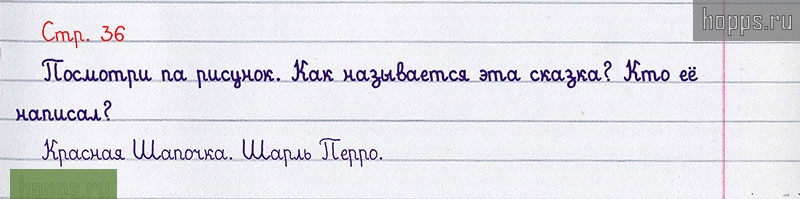 hopps.ru
Стр. 36
Посмотри па рисунок. Как называется эта сказка? Кто её
написал?
Красная Шапочка. Шарль Перро.
hopps.ru